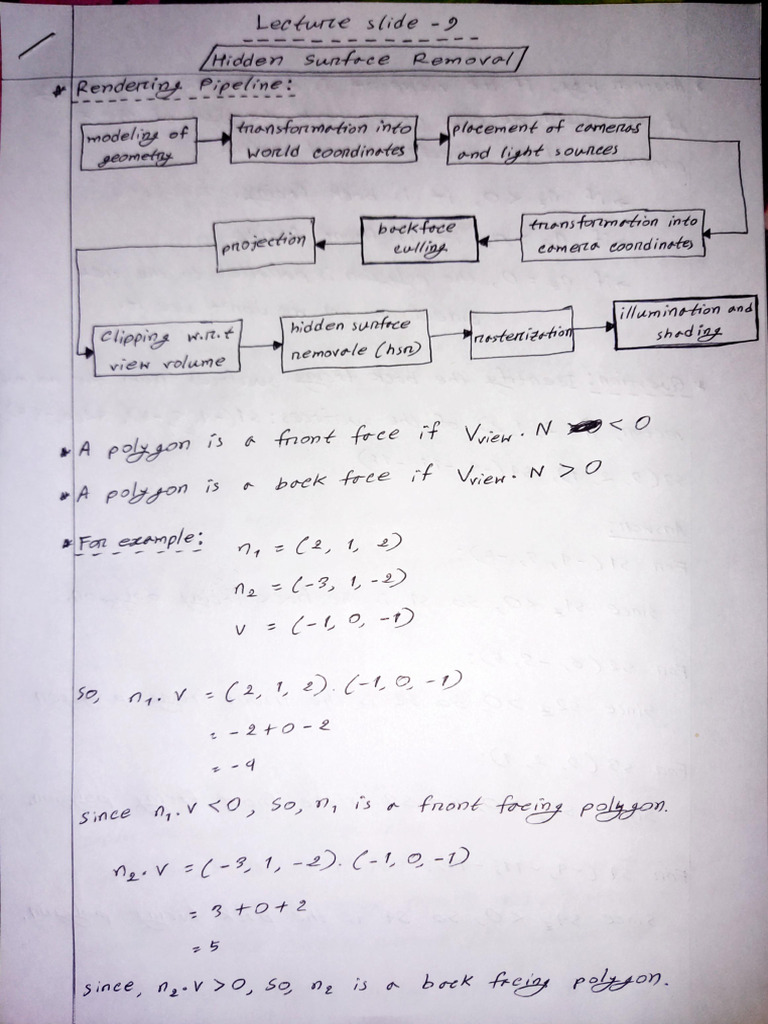 Lecture slide - 9
Hidden Surface Removal
* Rendering Pipeline:
modeling of geometry
transformation into world coordinates
placement of cameras and light sources
transformation into camera coordinates
backface culling
projection
Clipping w.r.t view volume
hidden surface removale (hsr)
rasterization
illumination and shading
* A polygon is a front face if Vview . N < 0
* A polygon is a back face if Vview . N > 0
* For example:
n1 = (2, 1, 2)
n2 = (-3, 1, -2)
v = (-1, 0, -1)
so, n1 . v = (2, 1, 2) . (-1, 0, -1)
= -2 + 0 - 2
= -4
since n1 . v < 0, so, n1 is a front facing polygon.
n2 . v = (-3, 1, -2) . (-1, 0, -1)
= 3 + 0 + 2
= 5
since, n2 . v > 0, so, n2 is a back facing polygon.